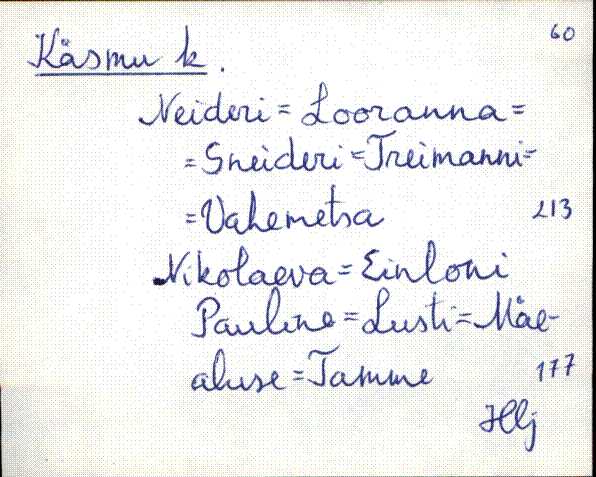 60
Käsmu k.
Neideri = Looranna =
= Sneideri = Treimanni =
= Vahemetsa 213
Nikolaeva = Einloni
Pauline = Lusti = Mäe-
aluse = Tamme 177
Hlj